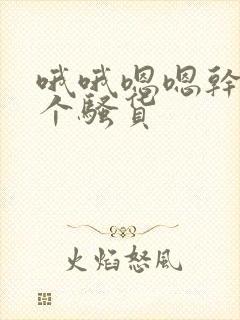 哦哦嗯嗯幹花
个騷貨
火焰怒風